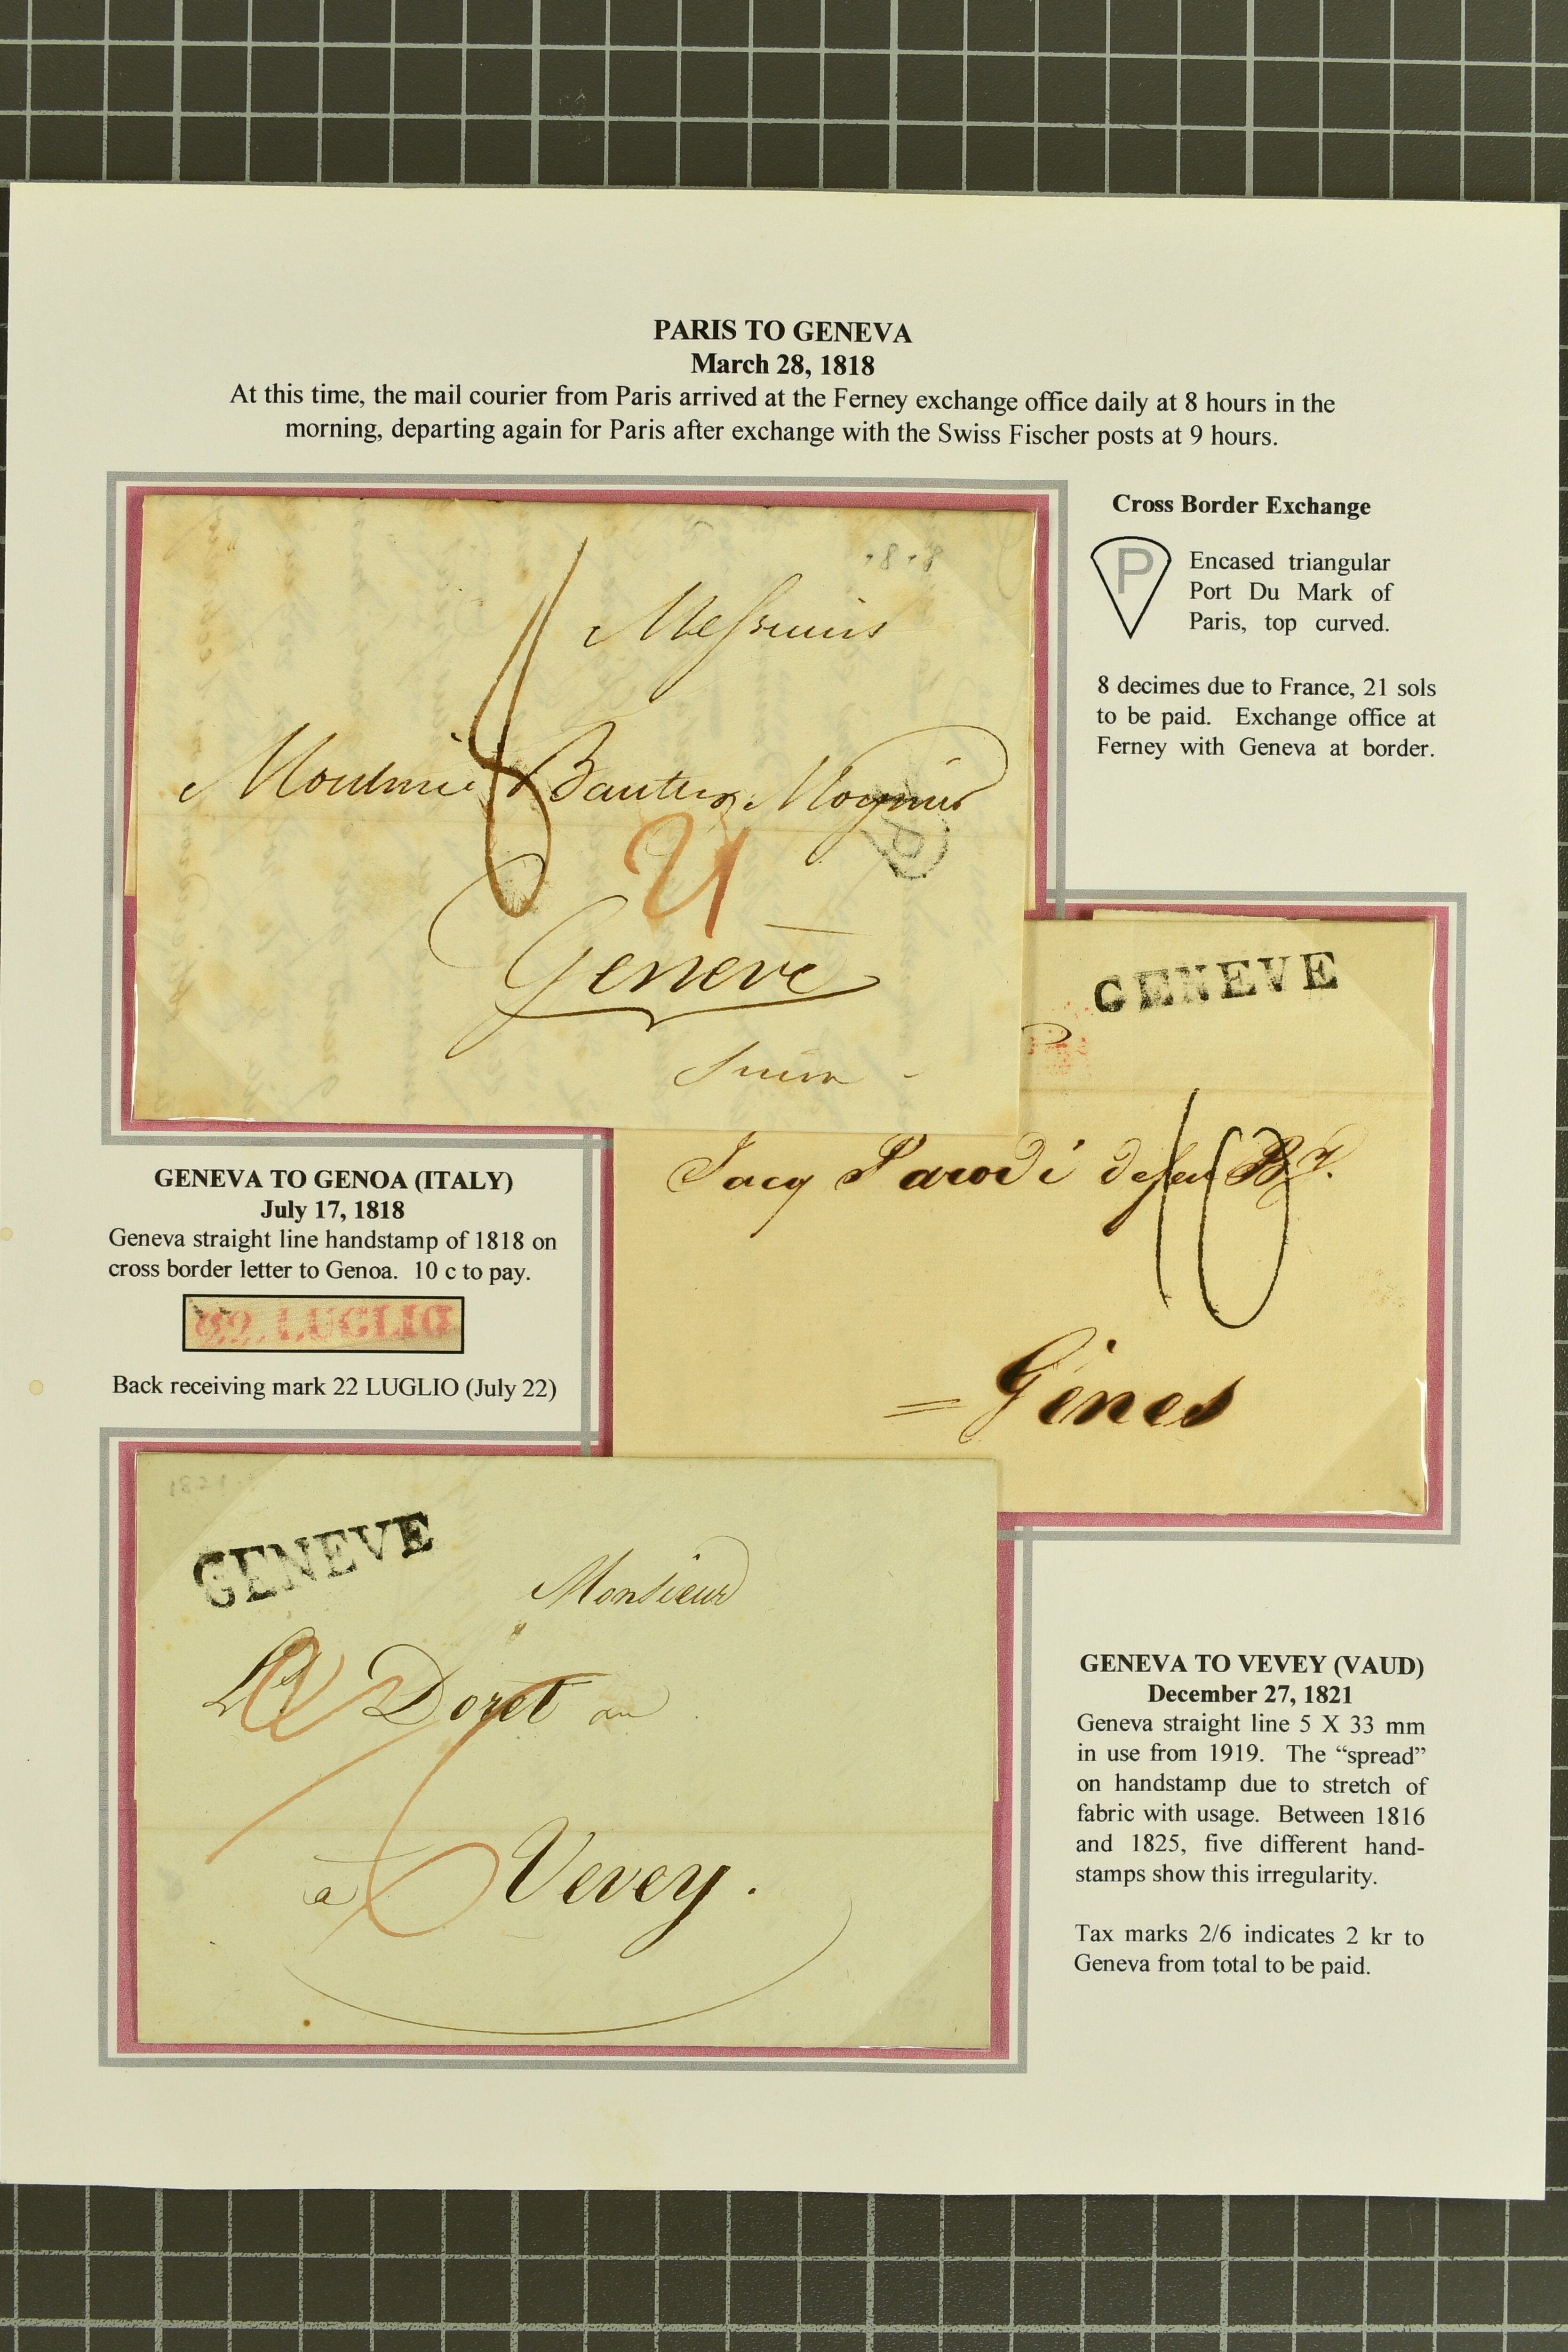 PARIS TO GENEVA
March 28, 1818
At this time, the mail courier from Paris arrived at the Ferney exchange office daily at 8 hours in the
morning, departing again for Paris after exchange with the Swiss Fischer posts at 9 hours.
Cross Border Exchange
P
Encased triangular
Port Du Mark of
Paris, top curved.
8 decimes due to France, 21 sols
to be paid. Exchange office at
Ferney with Geneva at border.
8
Messieurs
Bautte
21
P
Genève
GENEVE
Jacq Parodi
10
= Gênes
GENEVA TO GENOA (ITALY)
July 17, 1818
Geneva straight line handstamp of 1818 on
cross border letter to Genoa. 10 c to pay.
22 LUGLIO
Back receiving mark 22 LUGLIO (July 22)
GENEVE
Monsieur
Doret
2/6
à Vevey.
GENEVA TO VEVEY (VAUD)
December 27, 1821
Geneva straight line 5 X 33 mm
in use from 1919. The “spread”
on handstamp due to stretch of
fabric with usage. Between 1816
and 1825, five different hand-
stamps show this irregularity.
Tax marks 2/6 indicates 2 kr to
Geneva from total to be paid.